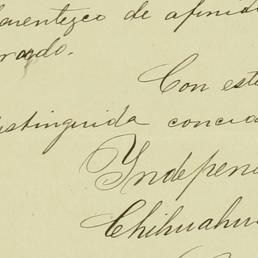 parentezco de afinid
rado.
Con est
distinguida conci
Independ
Chihuahu